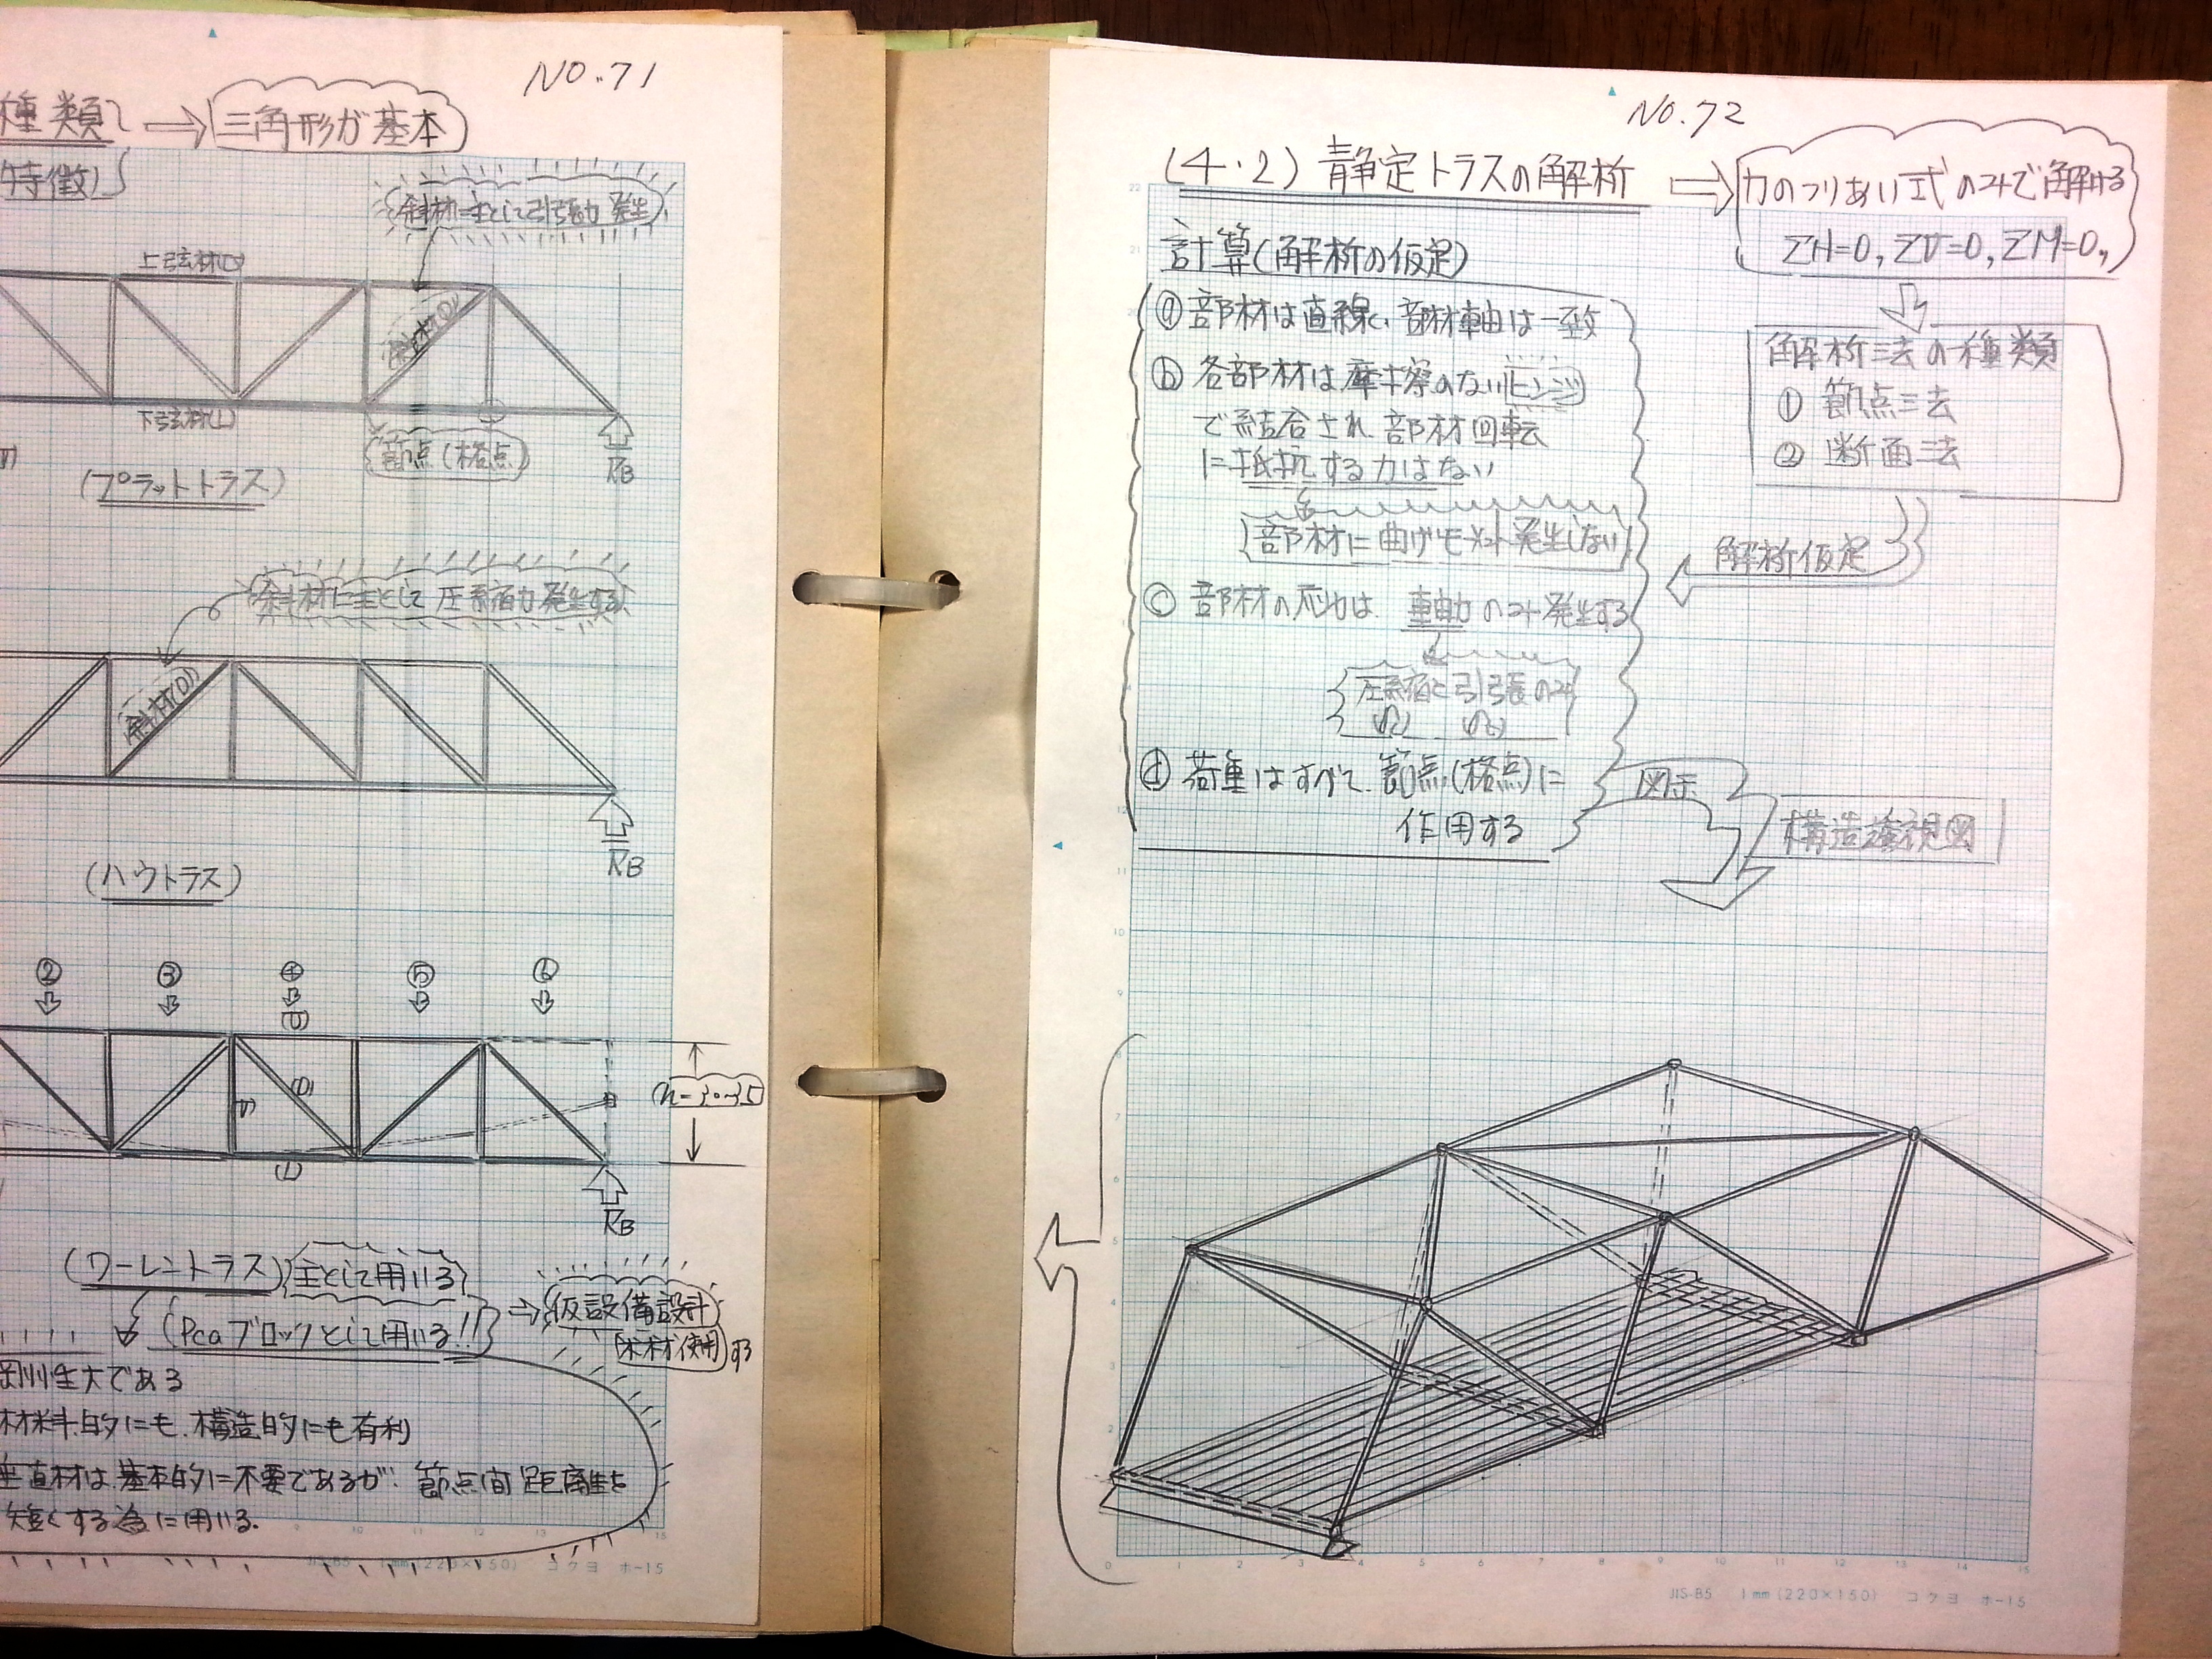 NO.71
種類 ⇒ 三角形が基本
特徴
斜材に主として引張力発生
上弦材(U)
斜材(D)
下弦材(L)
節点(格点)
RB
(プラットトラス)
斜材に主として圧縮力発生する
斜材(D)
RB
(ハウトラス)
② ③ ④ ⑤ ⑥
(U)
(D)
(L)
RB
(ワーレントラス) 主として用いる
(Pcaブロックとして用いる!!) ⇒ 仮設備設計
木材使用する
剛性大である
材料的にも、構造的にも有利
垂直材は、基本的に不要であるが、節点間距離を
短くする為に用いる.
JIS-B5 1mm (220×150) コクヨ ホ-15
NO.72
(4・2) 静定トラスの解析 ⇒ 力のつりあい式のみで解ける
ΣH=0, ΣV=0, ΣM=0,
計算(解析の仮定)
ⓐ 部材は直線、部材軸は一致
ⓑ 各部材は、摩擦のないヒンジ
で結合され、部材回転
に抵抗する力はない
部材に曲げモーメント発生しない
ⓒ 部材の応力は、軸力のみ発生する
圧縮と引張のみ
ⓓ 荷重はすべて、節点(格点)に
作用する
解析法の種類
① 節点法
② 断面法
解析仮定
図示
構造透視図
22
21
11
10
9
8
7
6
5
4
3
2
0 1 2 3 4 5 6 7 8 9 10 11 12 13 14 15
JIS-B5 1mm (220×150) コクヨ ホ-15